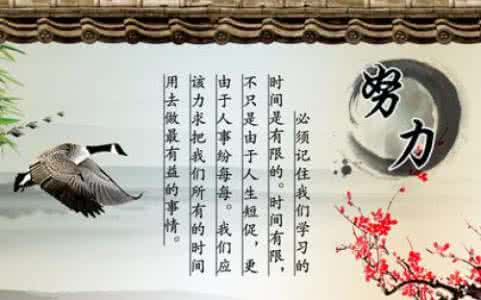 努力
必须记住我们学习的
时间是有限的。时间有限，
不只是由于人生短促，更
由于人事纷每每。我们应
该力求把我们所有的时间
用去做最有益的事情。